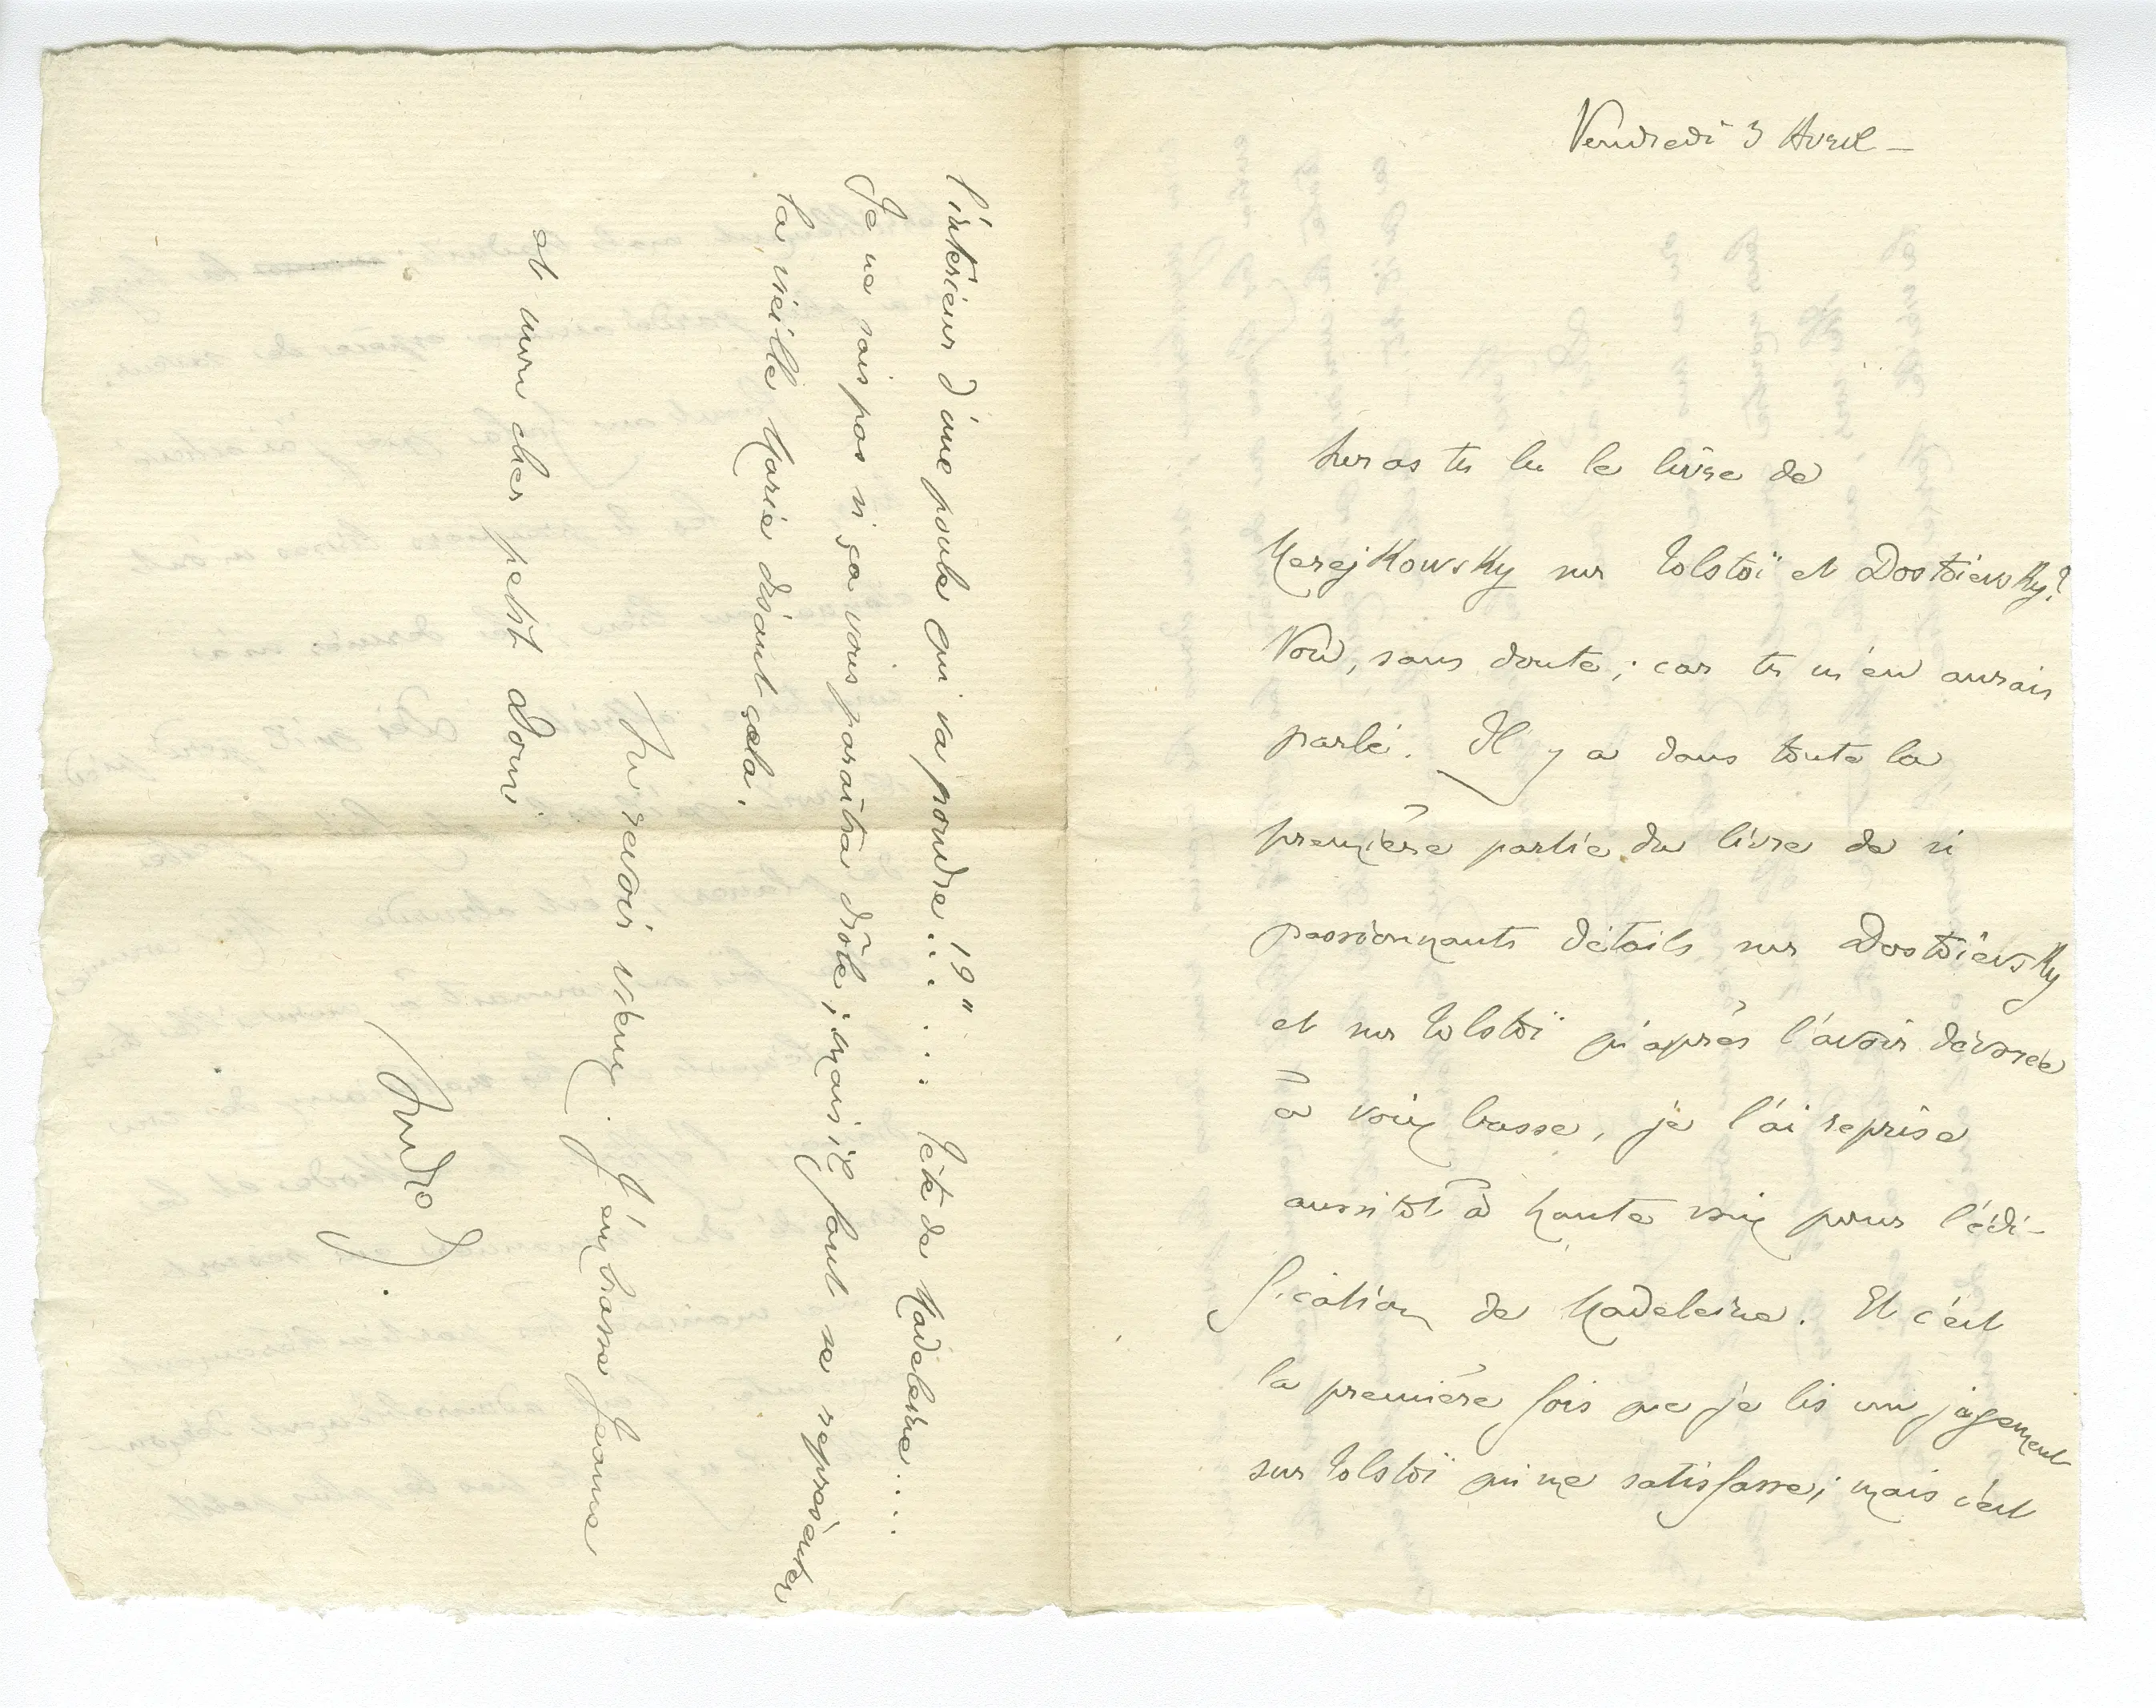 Vendredi 3 Avril —
Auras tu lu le livre de
Merejkowsky sur Tolstoï et Dostoïewsky?
Non, sans doute ; car tu m'en aurais
parlé. Il y a dans toute la
première partie du livre de si
passionnants détails sur Dostoïevsky
et sur Tolstoï qu'après l'avoir dévorée
à voix basse, je l'ai reprise
aussitôt à haute voix pour l'édi-
fication de Madeleine. Et c'est
la première fois que je lis un jugement
sur Tolstoï qui me satisfasse ; mais c'est
l'intérieur d'une poule qui va pondre ! !" . . . Tête de Madeleine . . . .
Je ne sais pas si ça vous paraîtra drôle ; mais il faut se représenter
la vieille Marie disant cela.
Au revoir vieux. J'embrasse Jeanne
et mon cher petit Domi.
André G.